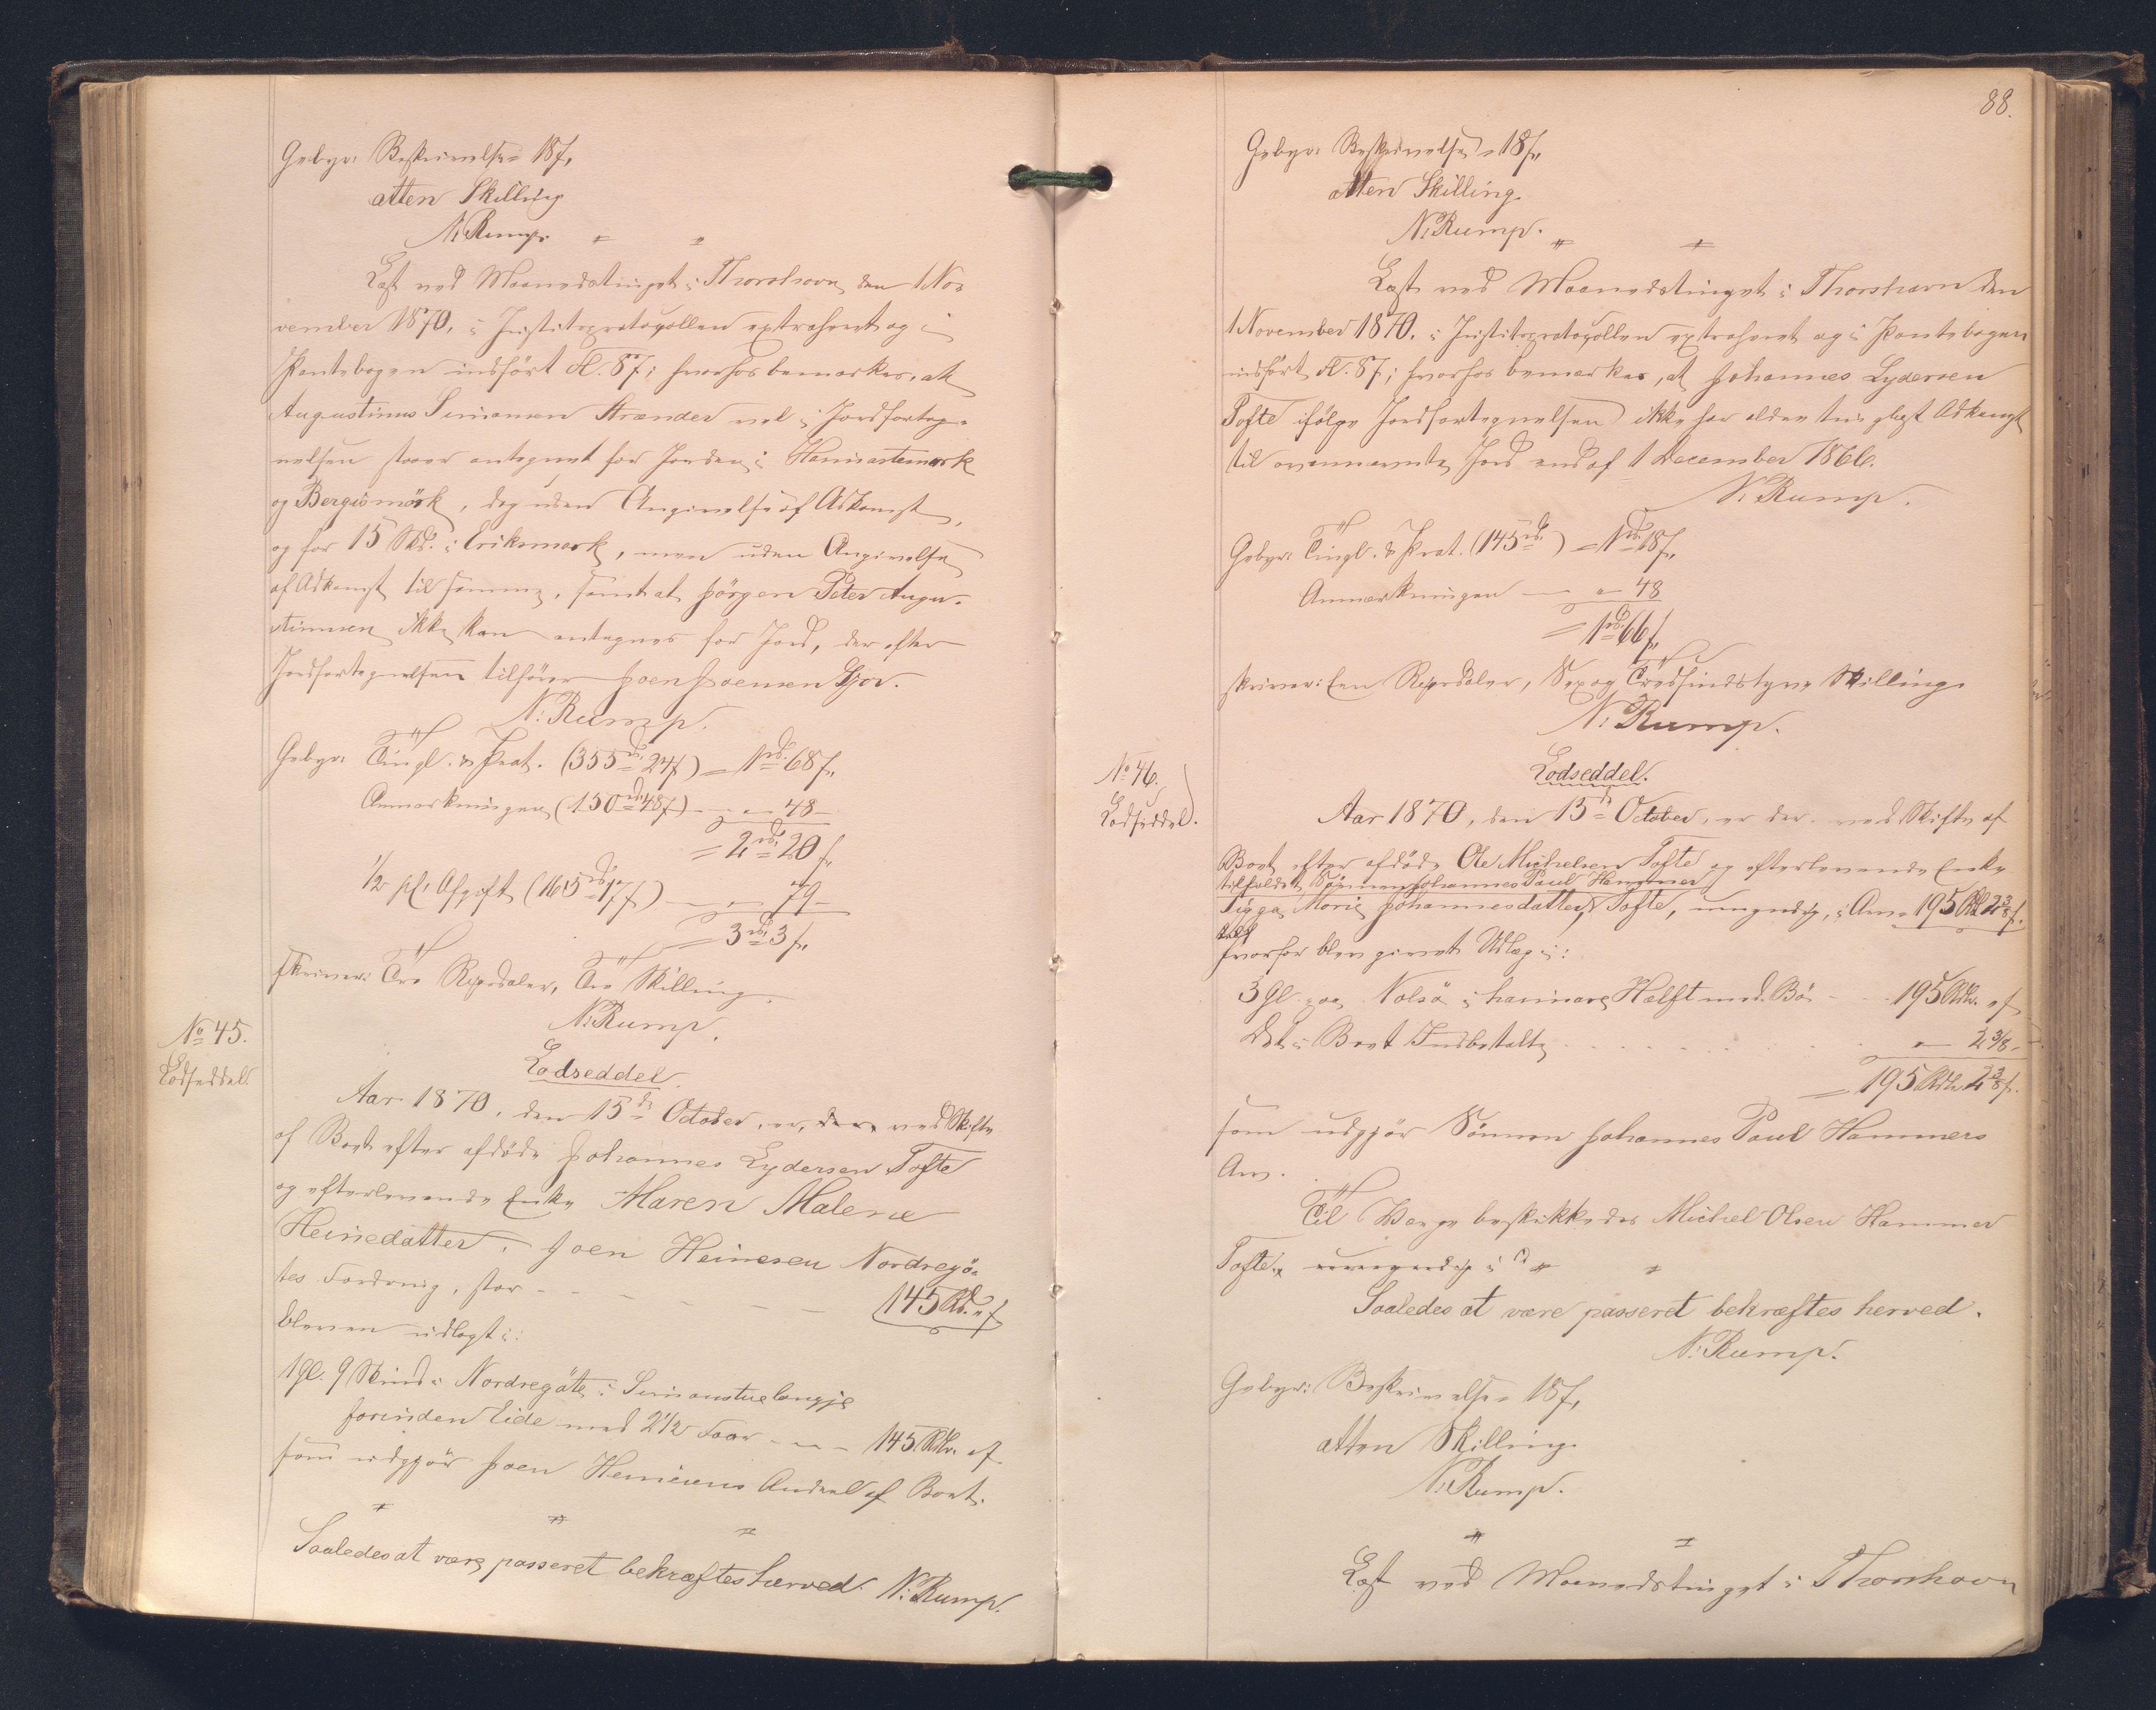 Gebyr: Beskrivelse = 18 ß,
atten Skilling
N. Rump.
Læst ved Maanedstinget i Thorshavn den 1 No=
vember 1870, i Justitsprotocollen extraheret og i
Pantebogen indført Fl. 87; hvorhos bemærkes, at
Augustinus Simonsen Strænder vel i Jordforteg=
nelsen staaer antegnet for Jorden i
og Bergismörk, dog uden Angivelse af Adkomst,
og for 15 Skd. i Eriksmørk, men uden Angivelse
af Adkomst til samme, samt at Jörgen Peter Augu=
stinusen ikke kan antegnes for Jord, der efter
Jordfortegnelsen tilhører Joen Joensen Gjov.
N. Rump.
Gebyr: Tingl. & Prot. (355 rd. 24 ß) = 1 rd. 68 ß,
Anmærkningen (150 rd. 48 ß) - " - 48 -
= 2 rd. 20 ß,
1/2 pCt. Afgift (165 rd. 17 ß) - " - 79 -
= 3 rd. 3 ß,
skriver: Tre Rigsdaler, Tre Skilling.
N. Rump.
No 45.
Lodseddel.
Lodseddel.
Aar 1870, den 15de October, er, der, ved Skifte
af Boet efter afdøde Johannes Lydersen Tofte
og efterlevende Enke Maren Malene
Heinedatter, Joen Heinesen Nordregö=
tes Fordring, stor - - - - - - 145 Rd. " ß
bleven udlagt i:
1 Gl. 9 Skind i Nordregöte i
forinden Eide med 2 1/2 Faar - - - 145 Rdlr. " ß
som udgjör Joen Heinesens Andeel af Boet.
Saaledes at være passeret bekræftes herved. N. Rump.
88.
Gebyr: Beskrivelse = 18 ß,
atten Skilling.
N. Rump.
Læst ved Maanedstinget i Thorshavn den
1 November 1870, i Justitsprotocollen extraheret og i Pantebogen
indført Fl. 87; hvorhos bemærkes, at Johannes Lydersen
Tofte ifølge Jordfortegnelsen ikke har ældre tinglæst Adkomst
til ovennævnte Jord end af 1 December 1866.
N. Rump.
Gebyr: Tingl. & Prot. (145 rd.) = 1 rd. 18 ß,
Anmærkningen - " - 48
= 1 rd. 66 ß,
skriver: Een Rigsdaler, Sex og Tredsindstyve Skilling.
N. Rump.
No 46.
Lodseddel.
Lodseddel.
Aar 1870, den 15de October, er der ved Skifte af
Boet efter afdøde Ole Michelsen Tofte og efterlevende Enke
tilfaldet Sönnen Johannes Paul Hammer
Sigga Marie Johannesdatter, Tofte, umyndig, i Arv = 195 Rdl. 2 3/8 ß.
hvorfor blev givet Udlæg i:
3 Gl. paa Nolsö i Hælft med Bö - - 195 Rdlr. " ß
Det i Boet Indbetalte . . . . . . . " - 2 3/8 -
= 195 Rdlr. 2 3/8 ß.
som udgjör Sönnen Johannes Paul Hammers
Arv.
Til Værge beskikkedes Michel Olsen Hammer
Tofte.
Saaledes at være passeret bekræftes herved.
N. Rump.
Gebyr: Beskrivelse = 18 ß,
atten Skilling.
N. Rump.
Læst ved Maanedstinget i Thorshavn